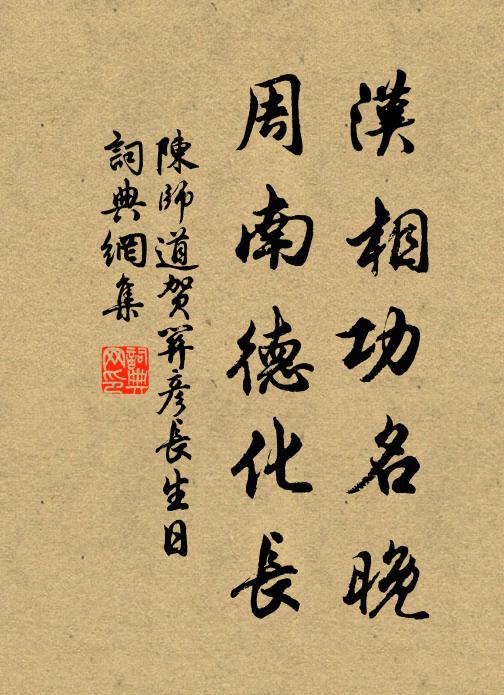 漢相功名晚
周南德化長
陳師道賀關彥長生日
詞典網集
詞典
网印